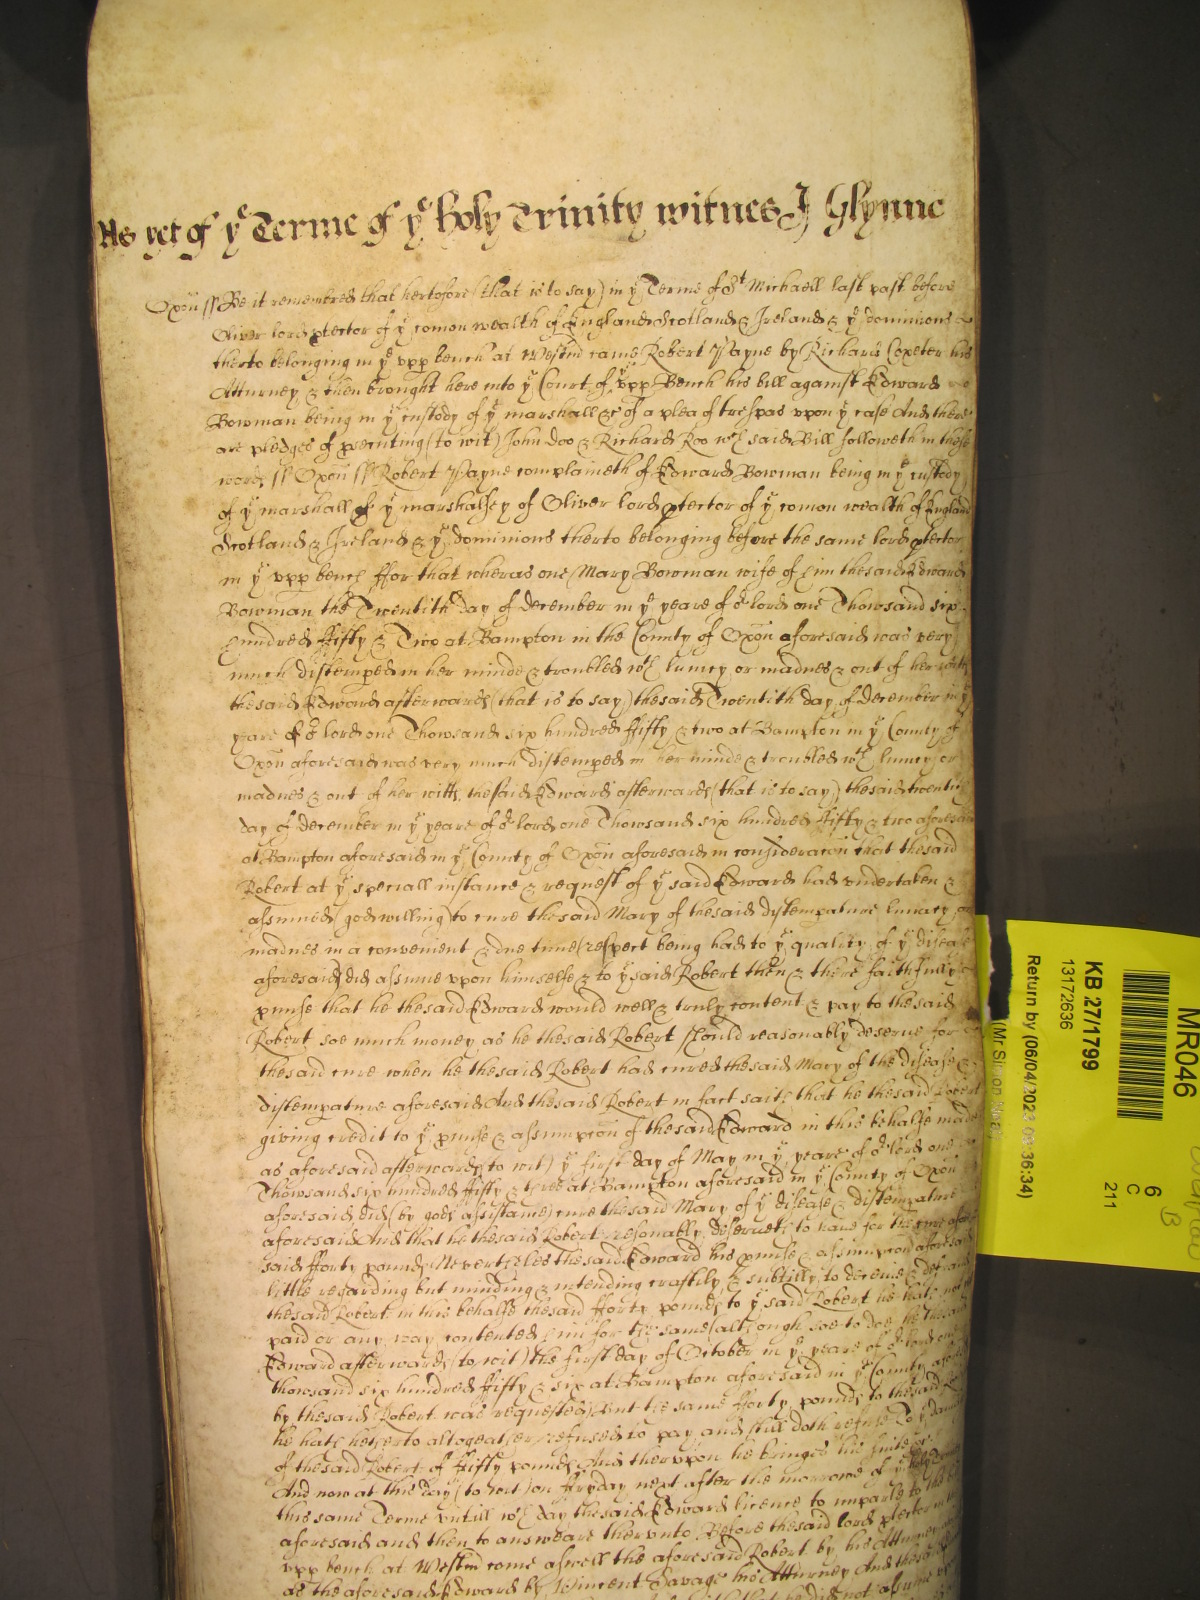 As yet of yᵉ Terme of yᵉ holy Trinity witnes J Glynne
Oxoñ ss Be it remembred that hertofore (that is to say) in yᵉ Terme of Sᵗ Michaell last past before
Oliver lord ptector of yᵉ comon wealth of England Scotland & Ireland & yᵉ dominions
therto belonging in yᵉ vpp bench at Westm̃ came Robert Payne by Richard Coxeter his
Atturney & then brought here into yᵉ Court of yᵉ vpp Bench his bill against Edward
Bowman being in yᵉ custody of yᵉ marshall &c of a plea of trespas vpon yᵉ case And there
are pledges of psecuting (to wit) John Doo & Richard Roo wᶜʰ said Bill followeth in these
words ss Oxoñ ss Robert Payne complaineth of Edward Bowman being in yᵉ custody
of yᵉ marshall of yᵉ marshalsey of Oliver lord ptector of yᵉ comon wealth of England
Scotland & Ireland & yᵉ dominions therto belonging before the same lord ptector
in yᵉ vpp bench ffor that wheras one Mary Bowman wife of him the said Edward
Bowman the Twentith day of December in yᵉ yeare of oʳ lord one Thowsand six
hundred ffifty & Two at Bampton in the County of Oxoñ aforesaid was very
much distemped in her minde & troubled wᵗʰ lunacy or madnes & out of her witts
the said Edward afterwards (that is to say) the said Twentith day of December in yᵉ
yeare of oʳ lord one Thowsand six hundred ffifty & two at Bampton in yᵉ County of
Oxoñ aforesaid was very much distemped in her minde & troubled wᵗʰ lunacy or
madnes & out of her witts the said Edward afterwards (that is to say) the said twentith
day of December in yᵉ yeare of oʳ lord one Thowsand six hundred ffifty & two aforesaid
at Bampton aforesaid in yᵉ County of Oxoñ aforesaid in consideracõn that the said
Robert at yᵉ speciall instance & request of yᵉ said Edward had vndertaken &
assumed (god willing) to cure the said Mary of the said distempature lunacy or
madnes in a convenient & due time (respect being had to yᵉ quality of yᵉ disease
aforesaid) did assume vpon himselfe & to yᵉ said Robert then & there faithfully
pmise that he the said Edward would well & truly content & pay to the said
Robert soe much money as he the said Robert should reasonably deserve for
the said cure when he the said Robert had cured the said Mary of the disease &
distempature aforesaid And the said Robert in fact saith that he the said Robert
giving credit to yᵉ pmise & assumpcõn of the said Edward in this behalfe made
as aforesaid afterwards (to wit) yᵉ first day of May in yᵉ yeare of oʳ lord one
Thowsand six hundred ffifty & three at Bampton aforesaid in yᵉ County of Oxoñ
aforesaid did (by gods assistance) cure the said Mary of yᵉ disease & distempature
aforesaid And that he the said Robert resonably deserveth to have for the cure afore
said fforty pounds Neverthelesse the said Edward his pmise & assumpcõn aforesaid
little regarding but minding & intending craftily & subtilly to deceive & defraud
the said Robert in this behalfe the said fforty pounds to yᵉ said Robert he hath not
paid or any way contented him for the same (although soe to doe he the said
Edward afterwards (to wit) the first day of October in yᵉ yeare of oʳ lord one
thowsand six hundred ffifty & six at Bampton aforesaid in yᵉ County aforesaid
by the said Robert was requested) but the same fforty pounds to the said
he hath hetherto altogeather refused to pay and still doth refuse To yᵉ damage
of the said Robert of ffifty pounds And thervpon he bringes his suite &c
And now at this day (to wit) on ffryday next after the morrowe of yᵉ holy
this same Terme vntill wᶜʰ day the said Edward licence to imparle to the bill
aforesaid and then to answeare thervnto Before the said lord ptector in yᵉ
vpp bench at Westm̃ come aswell the aforesaid Robert by his Atturney
as the aforesaid Edward by Vincent Savage his Atturney And the said
that he did not assume
MR046
KB 27/1799
13172636
Return by (06/04/2023 09:36:34)
6
C
211
B